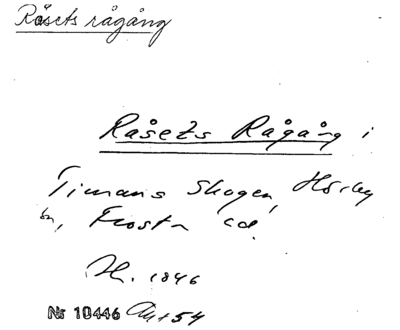 Råsets rågång
Råsets Rågång i
Timans Skogen, Hörby
sn, Frosta hd.
1846
Nr 10446 54